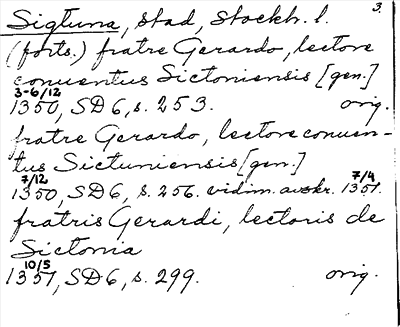 Sigtuna, stad, Stockh. l. 3.
(forts.) fratre Gerardo, lectore
conuentus Sictoniensis [gen.]
3-6/12
1350, SD6, s. 253. orig.
fratre Gerardo, lectore conuen-
tus Sictuniensis [gen.]
7/12 7/4
1350, SD6, s. 256. vidim. avskr. 1351.
fratris Gerardi, lectoris de
Sictonia
10/5
1351, SD6, s. 299. orig.